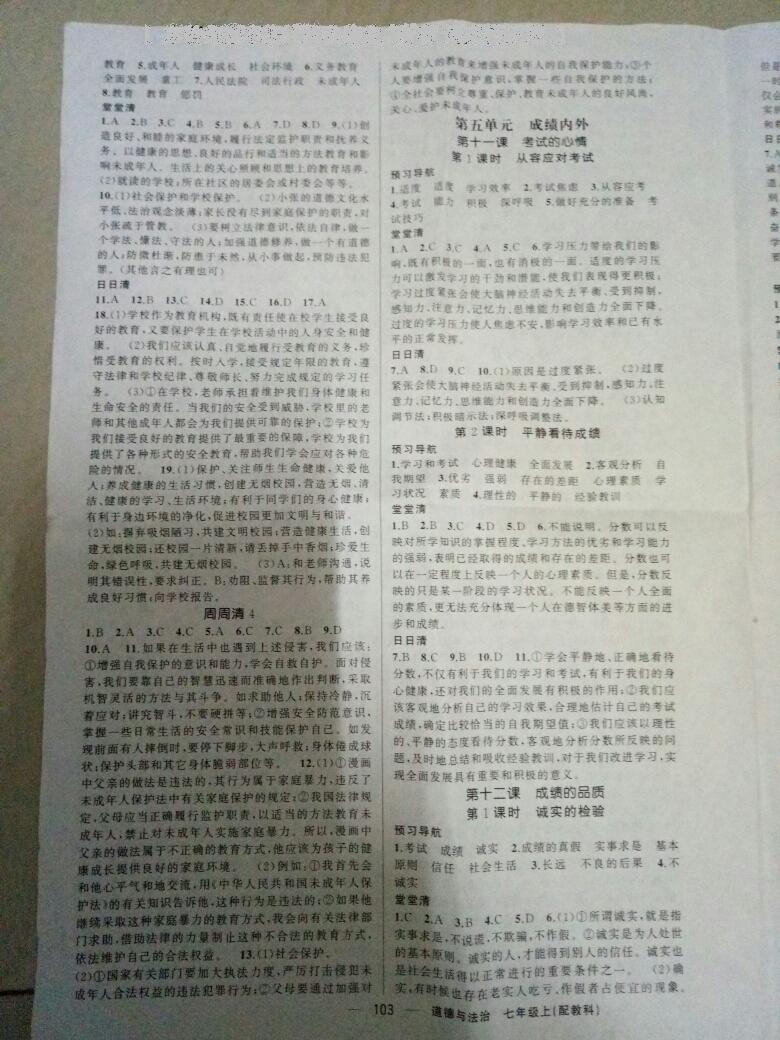 教育　5.成年人　健康成长　社会环境　6.义务教育
全面发展　童工　7.人民法院　司法行政　未成年人
8.教育　教育　惩罚
堂堂清
1.A　2.B　3.C　4.B　5.B　6.A　7.D　8.D　9.(1)创
造良好、和睦的家庭环境,履行法定监护职责和抚养义
务。以健康的思想、良好的品行和适当的方法教育和影
响未成年人。生活上的关心照顾和思想上的教育培养。
(2)就读的学校;所在社区的居委会或村委会等等。
10.(1)社会保护和学校保护。　(2)小张的道德文化水
平低、法治观念淡薄;家长没有尽到家庭保护的职责,对
小张疏于管教。　(3)要树立法律意识,依法自律,做一
个学法、懂法、守法的人;加强道德修养,做一个有道德
的人;防微杜渐,防患于未然,从小事做起,预防违法犯
罪。(其他言之有理也可)
日日清
11.A　12.B　13.C　14.D　15.C　16.D　17.A
18.(1)学校作为教育机构,既有责任使在校学生接受良
好的教育,又要保护学生在学校活动中的人身安全和健
康。　(2)我们应该认真、自觉地履行受教育的义务,珍
惜受教育的权利。按时入学,接受规定年限的教育,遵
守法律和学校纪律、尊敬师长、努力完成规定的学习任
务。　(3)①在学校,老师承担着维护我们身体健康和
生命安全的责任。当我们的安全受到威胁,学校里的老
师和其他成年人都会为我们提供可靠的保护;②学校为
我们接受良好的教育提供了最重要的保障,学校为我们
提供了各种形式的安全教育,帮助我们学会应对各种危
险的情况。　19.(1)保护、关注师生生命健康,关爱他
人;养成健康的生活习惯,创建无烟校园,营造无烟、清
洁、健康的学习、生活环境;有利于同学们的身心健康;
有利于身边环境的净化,促进校园更加文明与和谐。
(2)如:摒弃吸烟陋习,共建文明校园;营造健康生活,创
建无烟校园;还校园一片清新,请丢掉手中香烟;珍爱生
命,绿色呼吸,共建无烟校园。　(3)A:和老师沟通,说
明其错误性,要求纠正。B:劝阻、监督其行为,帮助其养
成良好习惯;向学校报告。
周周清 4
1.B　2.A　3.C　4.C　5.A　6.C　7.C　8.B　9.D
10.A　11.如果在生活中也遇到上述侵害,我们应该:
①增强自我保护的意识和能力,学会自救自护。面对侵
害,我们要靠自己的智慧迅速而准确地作出判断,采取
机智灵活的方法与其斗争。如求助他人;保持冷静,沉
着应对;讲究智斗,不要硬拼等;②增强安全防范意识,
掌握一些日常生活的安全常识和技能保护自己。如发
现前面有人摔倒时,要停下脚步,大声呼救;身体倦成球
状;保护头部和其它身体脆弱部位等。　12.(1)①漫画
中父亲的做法是违法的,其行为属于家庭暴力,违反了
未成年人保护法中有关家庭保护的规定;②我国法律规
定,父母应当正确履行监护职责,以适当的方法教育未
成年人,禁止对未成年人实施家庭暴力。所以,漫画中
父亲的做法属于不正确的教育方式,他应该为孩子的健
康成长提供良好的家庭环境。　(2)例如:①我首先会
和他心平气和地交流,用《中华人民共和国未成年人保
护法》的有关知识告诉他,这种行为是违法的;②如果他
继续采取这种家庭暴力的教育方式,我会向有关法律部
门求助,借助法律的力量制止这种不合法的教育方式,
依法维护自己的合法权益。　13.(1)社会保护。
(2)①国家有关部门要加大执法力度,严厉打击侵犯未
成年人合法权益的违法犯罪行为;②父母要通过加强对
未成年人的教育来增强未成年人的自我保护能力;③个
人要增强自我保护意识,掌握一些自我保护的方法;
④全社会要树立尊重、保护、教育未成年人的良好风尚,
关心、爱护未成年人。
第五单元　成绩内外
第十一课　考试的心情
第1课时　从容应对考试
预习导航
1.适度　适度　学习效率　2.考试焦虑　3.从容应考
4.考试　能力　积极　深呼吸　5.做好充分的准备　考
试技巧
堂堂清
1.A　2.C　3.C　4.A　5.C　6.学习压力带给我们的影
响,既有积极的一面,也有消极的一面。适度的学习压
力可以激发学习的干劲和潜能,使我们表现得更积极;
学习过度紧张会使大脑神经活动失去平衡、受到抑制,
感知力、注意力、记忆力、思维能力和创造力全面下降。
过度的学习压力使人焦虑不安,影响学习效率和已有水
平的正常发挥。
日日清
7.A　8.D　9.C　10.(1)原因是过度紧张。　(2)过度
紧张会使大脑神经活动失去平衡、受到抑制,感知力、注
意力、记忆力、思维能力和创造力全面下降。　(3)认知
调节法;积极暗示法;深呼吸调整法。
第2课时　平静看待成绩
预习导航
1.学习和考试　心理健康　全面发展　2.客观分析　自
我期望　3.优劣　强弱　存在的差距　心理素质　学
习状况　素质　4.理性的　平静的　经验教训
堂堂清
1.B　2.B　3.C　4.D　5.D　6.不能说明。分数可以反
映对所学知识的掌握程度、学习方法的优劣和学习能力
的强弱,表明已经取得的成绩和存在的差距。分数也可
以在一定程度上反映一个人的心理素质。但是,分数反
映的只是某一阶段的学习状况。不能反映一个人全面
的素质,更无法充分体现一个人在德智体美等方面的进
步和成绩。
日日清
7.B　8.C　9.B　10.D　11.①学会平静地、正确地看待
分数,不仅有利于我们的学习和考试,有利于我们的身
心健康,还对我们的全面发展有积极的作用;②我们应
该客观地分析自己的学习效果,合理地估计自己的考试
成绩,确定比较恰当的自我期望值;③我们应该以理性
的、平静的态度看待分数,客观地分析分数所反映的问
题,及时地总结和吸收经验教训,对于我们改进学习,实
现全面发展具有重要和积极的意义。
第十二课　成绩的品质
第1课时　诚实的检验
预习导航
1.考试　成绩　诚实　2.成绩的真假　实事求是　基本
原则　信任　社会生活　3.长远　不良的后果　4.不
诚实
堂堂清
1.C　2.A　3.B　4.C　5.D　6.(1)①所谓诚实,就是指
实事求是,不说谎,不欺骗,不作假。②诚实是为人处世
的基本原则。诚实的人,才能得到别人的信任。诚实也
是社会生活得以正常进行的重要条件之一。　(2)确
实,有时候也存在老实人吃亏、作假者占便宜的现象。
— 103 —　道德与法治　七年级上(配教科)